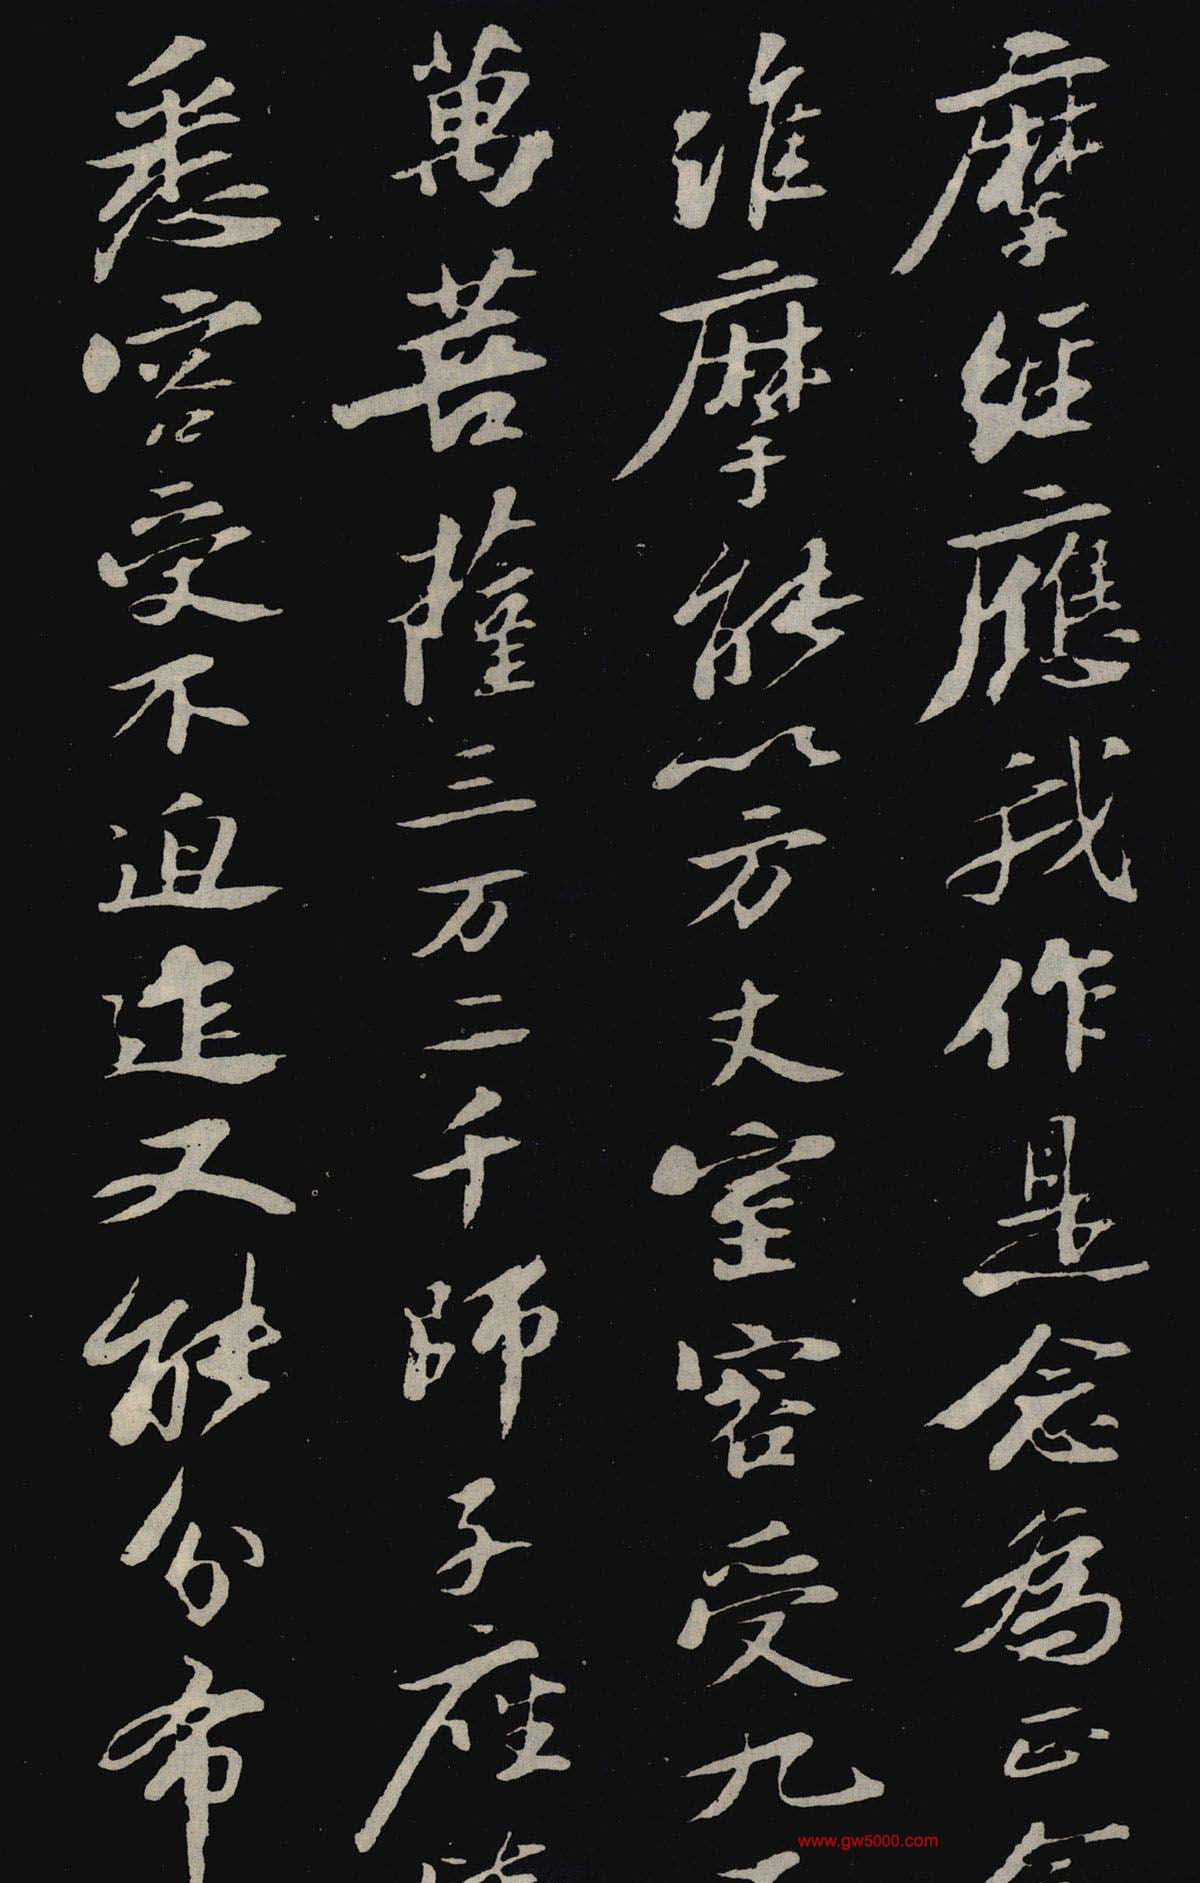 摩經應我作是念為正念
維摩能以方丈室容受九
萬菩薩三万二千師子座皆
悉容受不迫迮又能分布
www.gw5000.com